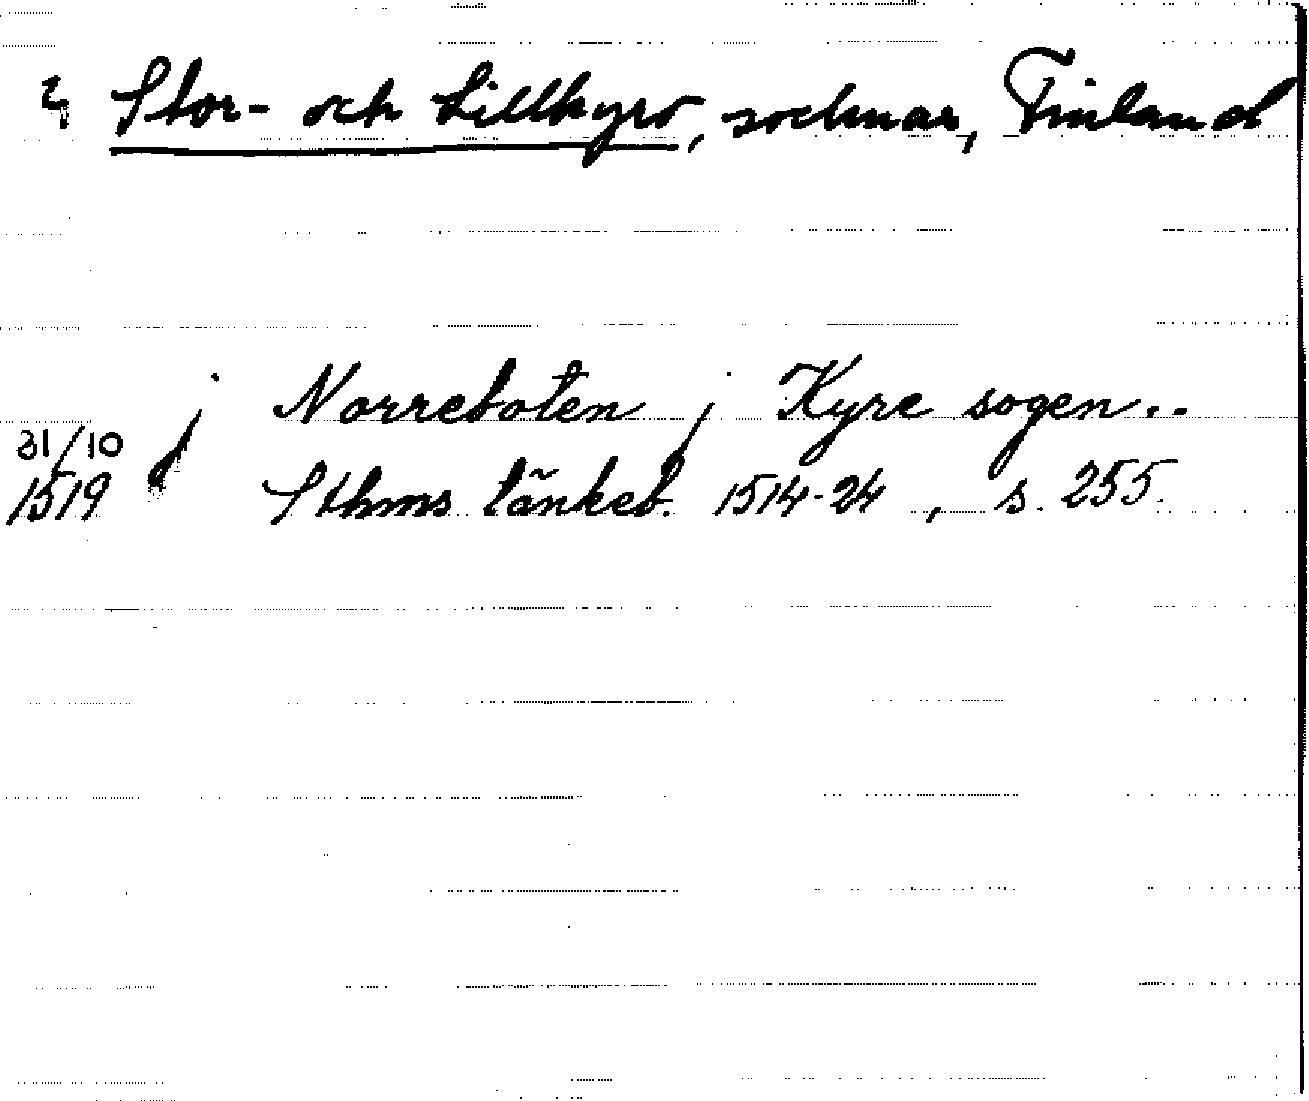 Stor- och Lillkyro, socknar, Finland
j Norreboten j Kyre sogen..
31/10
1519 Sthms tänkeb. 1514-24, s. 255.